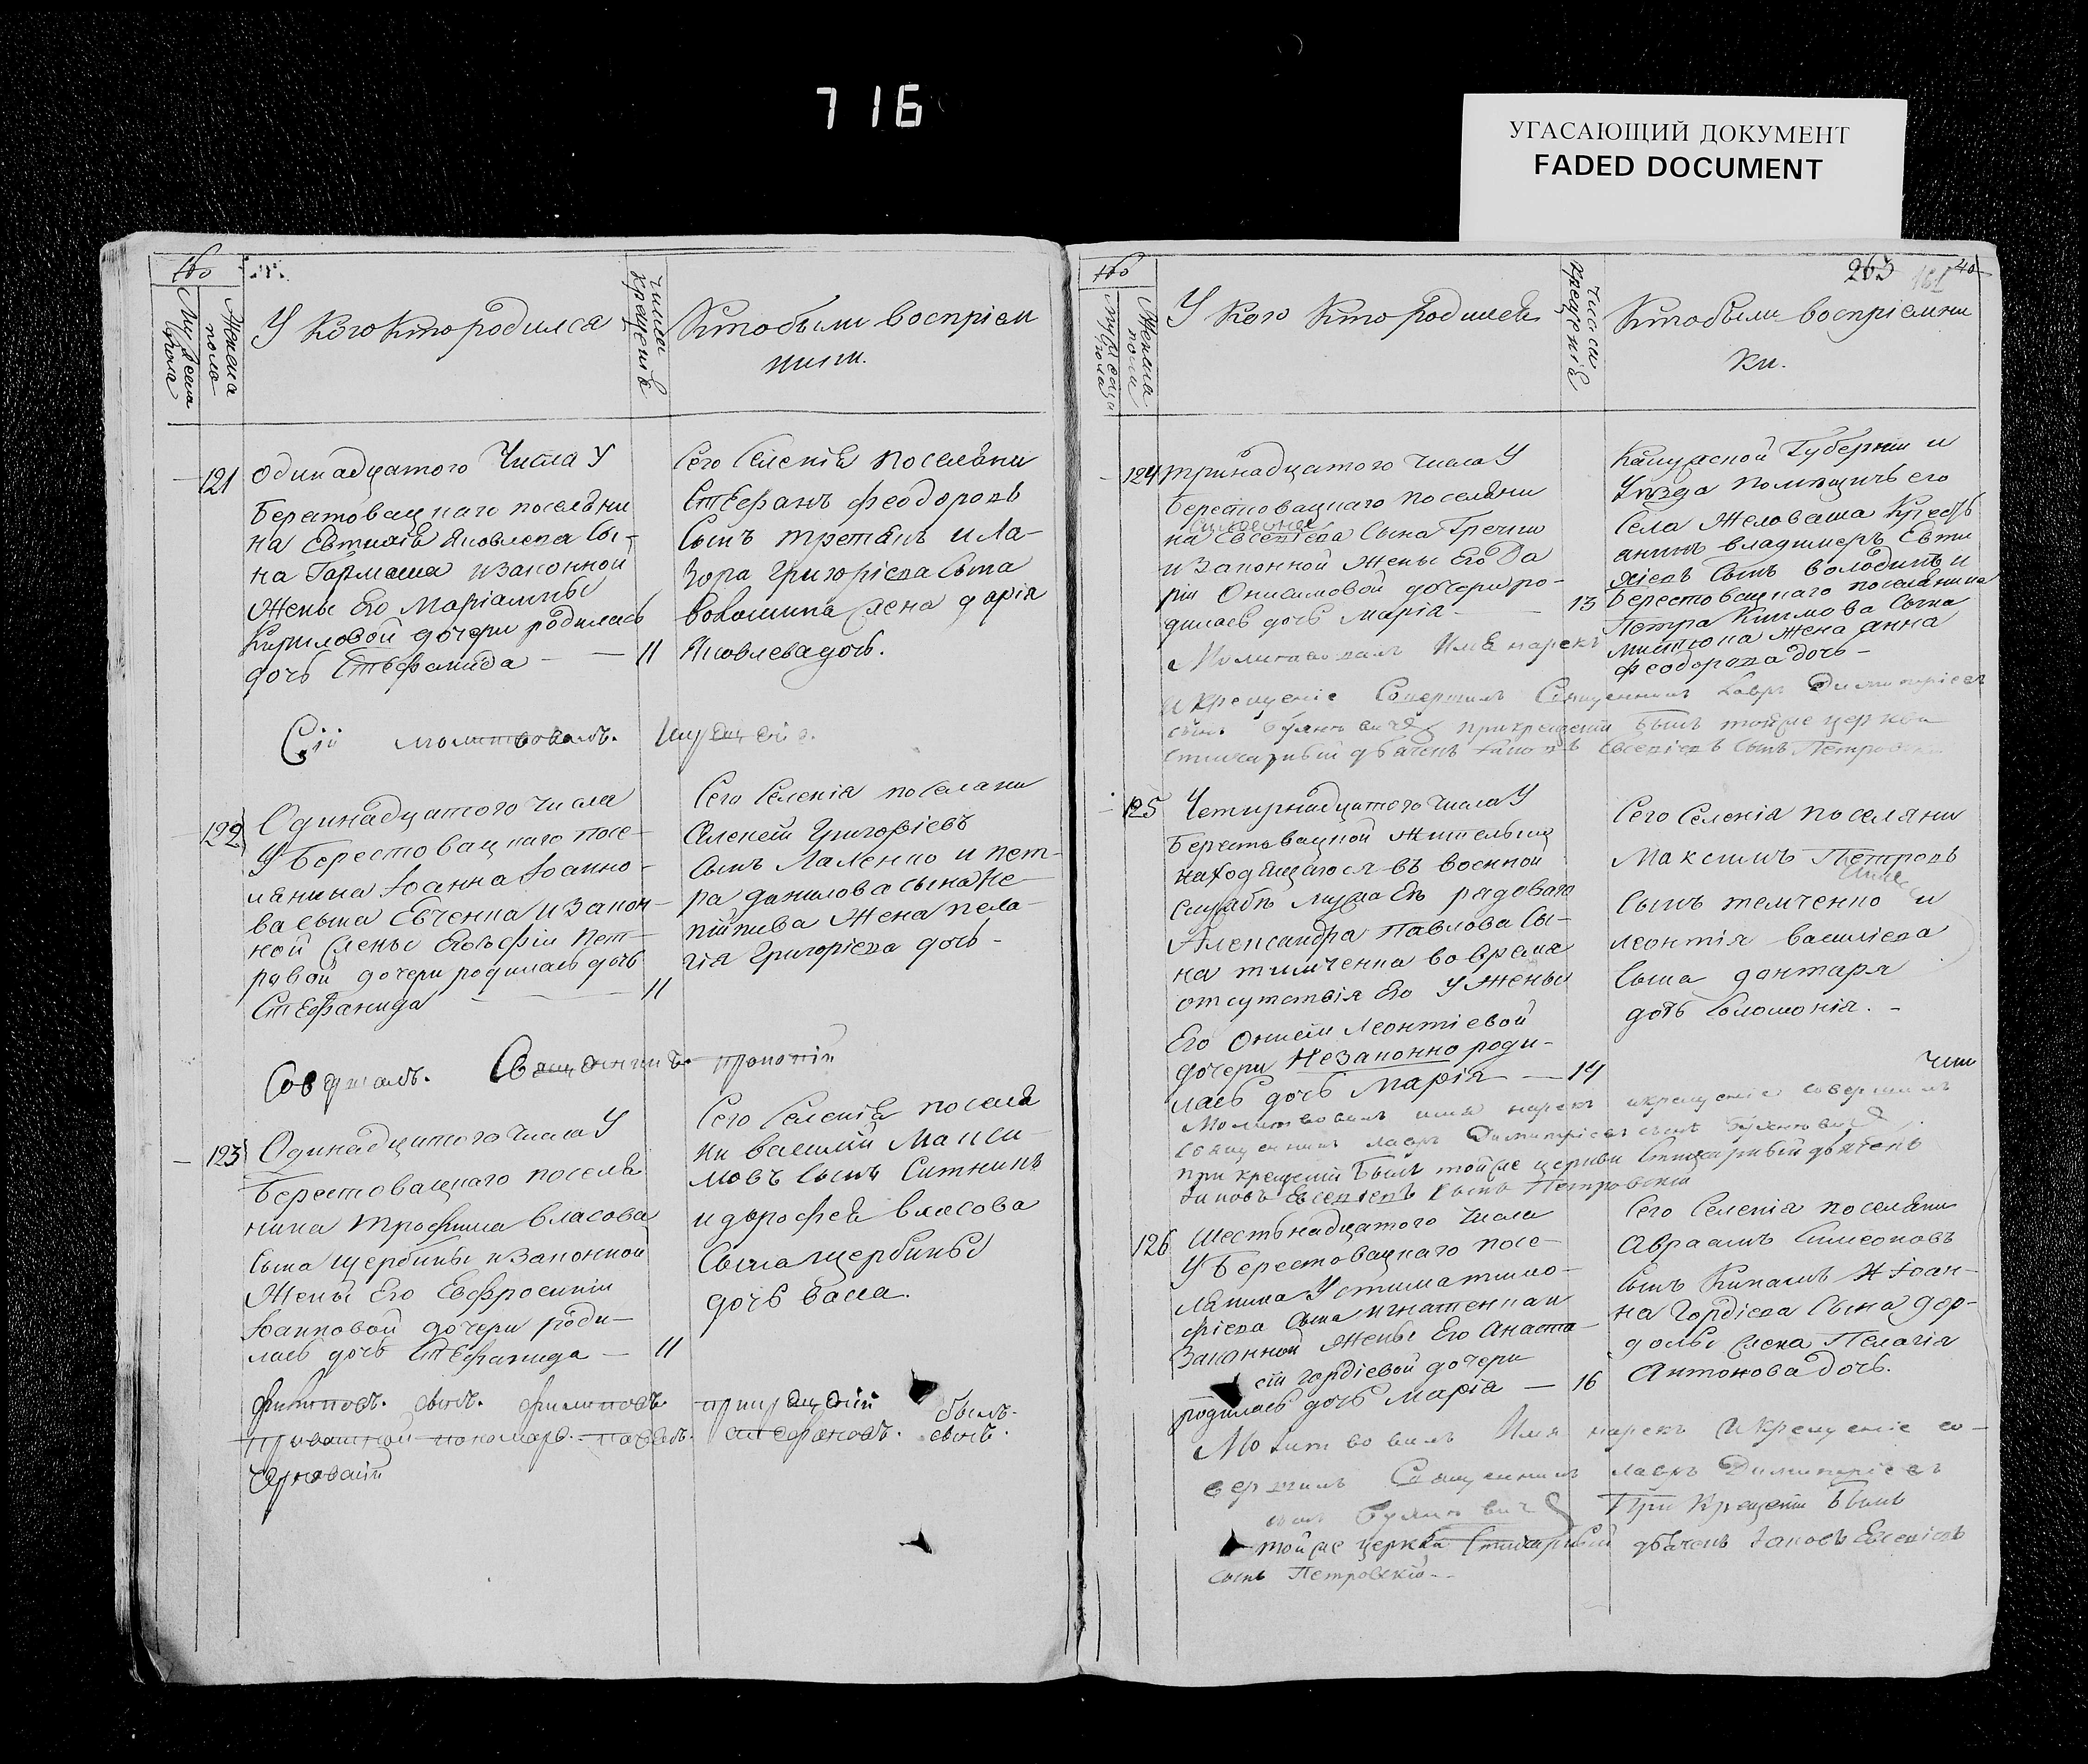 716
УГАСАЮЩИЙ ДОКУМЕНТ
FADED DOCUMENT
Мужеска пола
Женска пола
У кого кто родился
числа крещенія
Кто были воспріем
ники.
121
Одинадцатого Числа У
Берестоващаго поселяни
на Евтихія Яковлева Сы-
на Гармаша и законной
Жены Его Маріамны
Кириловой дочери родилась
дочь Стефанида — — 11
Сего Селенія поселяни
Стефанъ Феодоровъ
Сынъ третякъ и Ла-
зора Григоріева Сына
волошина жена дарія
Яковлева дочь.
Сій молитвовалъ.
122
Одинадцатого числа
У Берестоващаго посе-
лянина Іоанна Іоанно-
ва сына Евченка и закон-
ной жены Его Софіи Пет-
ровой дочери родилась дочь
Стефанида — 11
Сего Селенія поселяни
Алексей Григоріевъ
сынъ Лаленко и пет-
ра данилова сына Не-
пійпива Жена пела-
гія Григоріева дочь-
Совершалъ. Священникъ прокопій
123
Одинадцатого числа У
Берестоващаго поселя
нина трофима власова
Сына щербины и законной
Жены Его Евфросиніи
Іоанновой дочери роди-
лась дочь Стефанида — 11
Сего Селенія поселя
ни василій Макси-
мовъ сынъ Ситникъ
и дорофея власова
Сына щербины
дочь васса.
Филиповъ. сынъ. Филиповъ. при крещеніи былъ.
пономарь. стефановъ. сынъ.
263
40
Мужеска пола
Женска пола
У кого кто родился
Числа крещенія
Кто были воспріемни
ки.
124
тринадцатого числа У
Берестоващаго поселяни
на Евсевіева Сына Гречки
и законной Жены Его Да
ріи Онисимовой дочери ро-
дилась дочь Марія — 13
Калужской Губерніи и
Уезда помещичьего
Села Желоваша Крестья
анинъ владимеръ Евти
хіевъ сынъ володинъ и
Берестоващаго поселянина
Петра Климова Сына
Жена анна
Феодорова дочь-
Молитвовалъ Имя нарекъ
и крещеніе Совершилъ Священникъ Лавръ Димитріевъ
сынъ при крещеніи былъ тойже церкви
Стихарный дьячекъ Іаковъ Евсевіевъ Сынъ Петровскій
125
Четирнадцатого числа У
Берестовацкой Жительки
находящагося въ военной
службе рядового
Александра Павлова Сы-
на тимченка во время
отсутствія Его У Жены
Его Леонтіевой
дочери Незаконно роди-
лась дочь Марія — 14
Сего Селенія поселяни
Максимъ Петровъ
Сынъ темченко и
леонтія василіева
Сына донтаря
дочь Соломонія. -
Молитвовалъ имя нарекъ и крещеніе совершилъ
священникъ лавръ Димитріевъ сынъ
при крещеніи былъ тойже церкви Стихарный дьячекъ
Іаковъ Евсевіевъ Сынъ Петровскій
126
Шестьнадцатого Числа
У Берестоващаго посе-
лянина Устима тимо-
фіева Сына игнатенка и
Законной Жены Его Анаста
сіи гордіевой дочери
родилась дочь Марія — 16
Сего Селенія поселяни
Авраамъ Симеоновъ
Сынъ и Іоан-
на Гордіева Сына дер-
жена Пелагія
Антонова дочь.
Молитвовалъ Имя нарекъ и крещеніе со-
вершилъ Священникъ лавръ Димитріевъ
сынъ При крещеніи былъ
тойже церкви Стихарный дьячекъ Іаковъ Евсевіевъ
сынъ Петровскій--